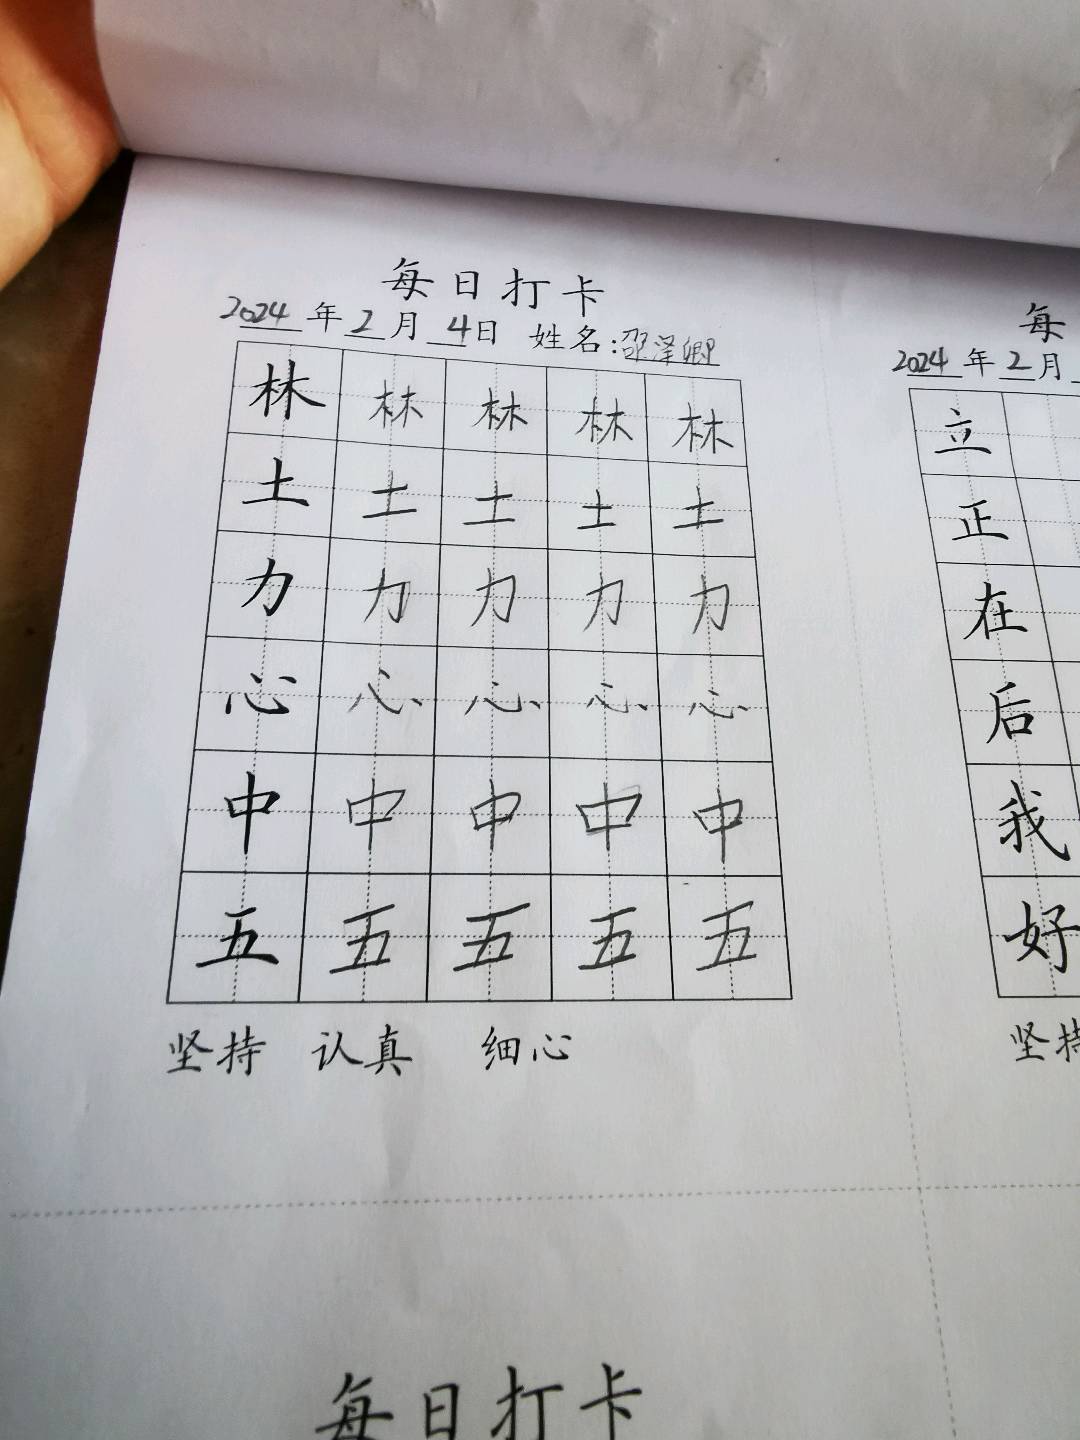 每日打卡
2024年2月4日 姓名:邵泽卿
林林林林林
土土土土土
力力力力力
心心心心心
中中中中中
五五五五五
坚持 认真 细心
每
2024年2月
立
正
在
后
我
好
坚持
每日打卡